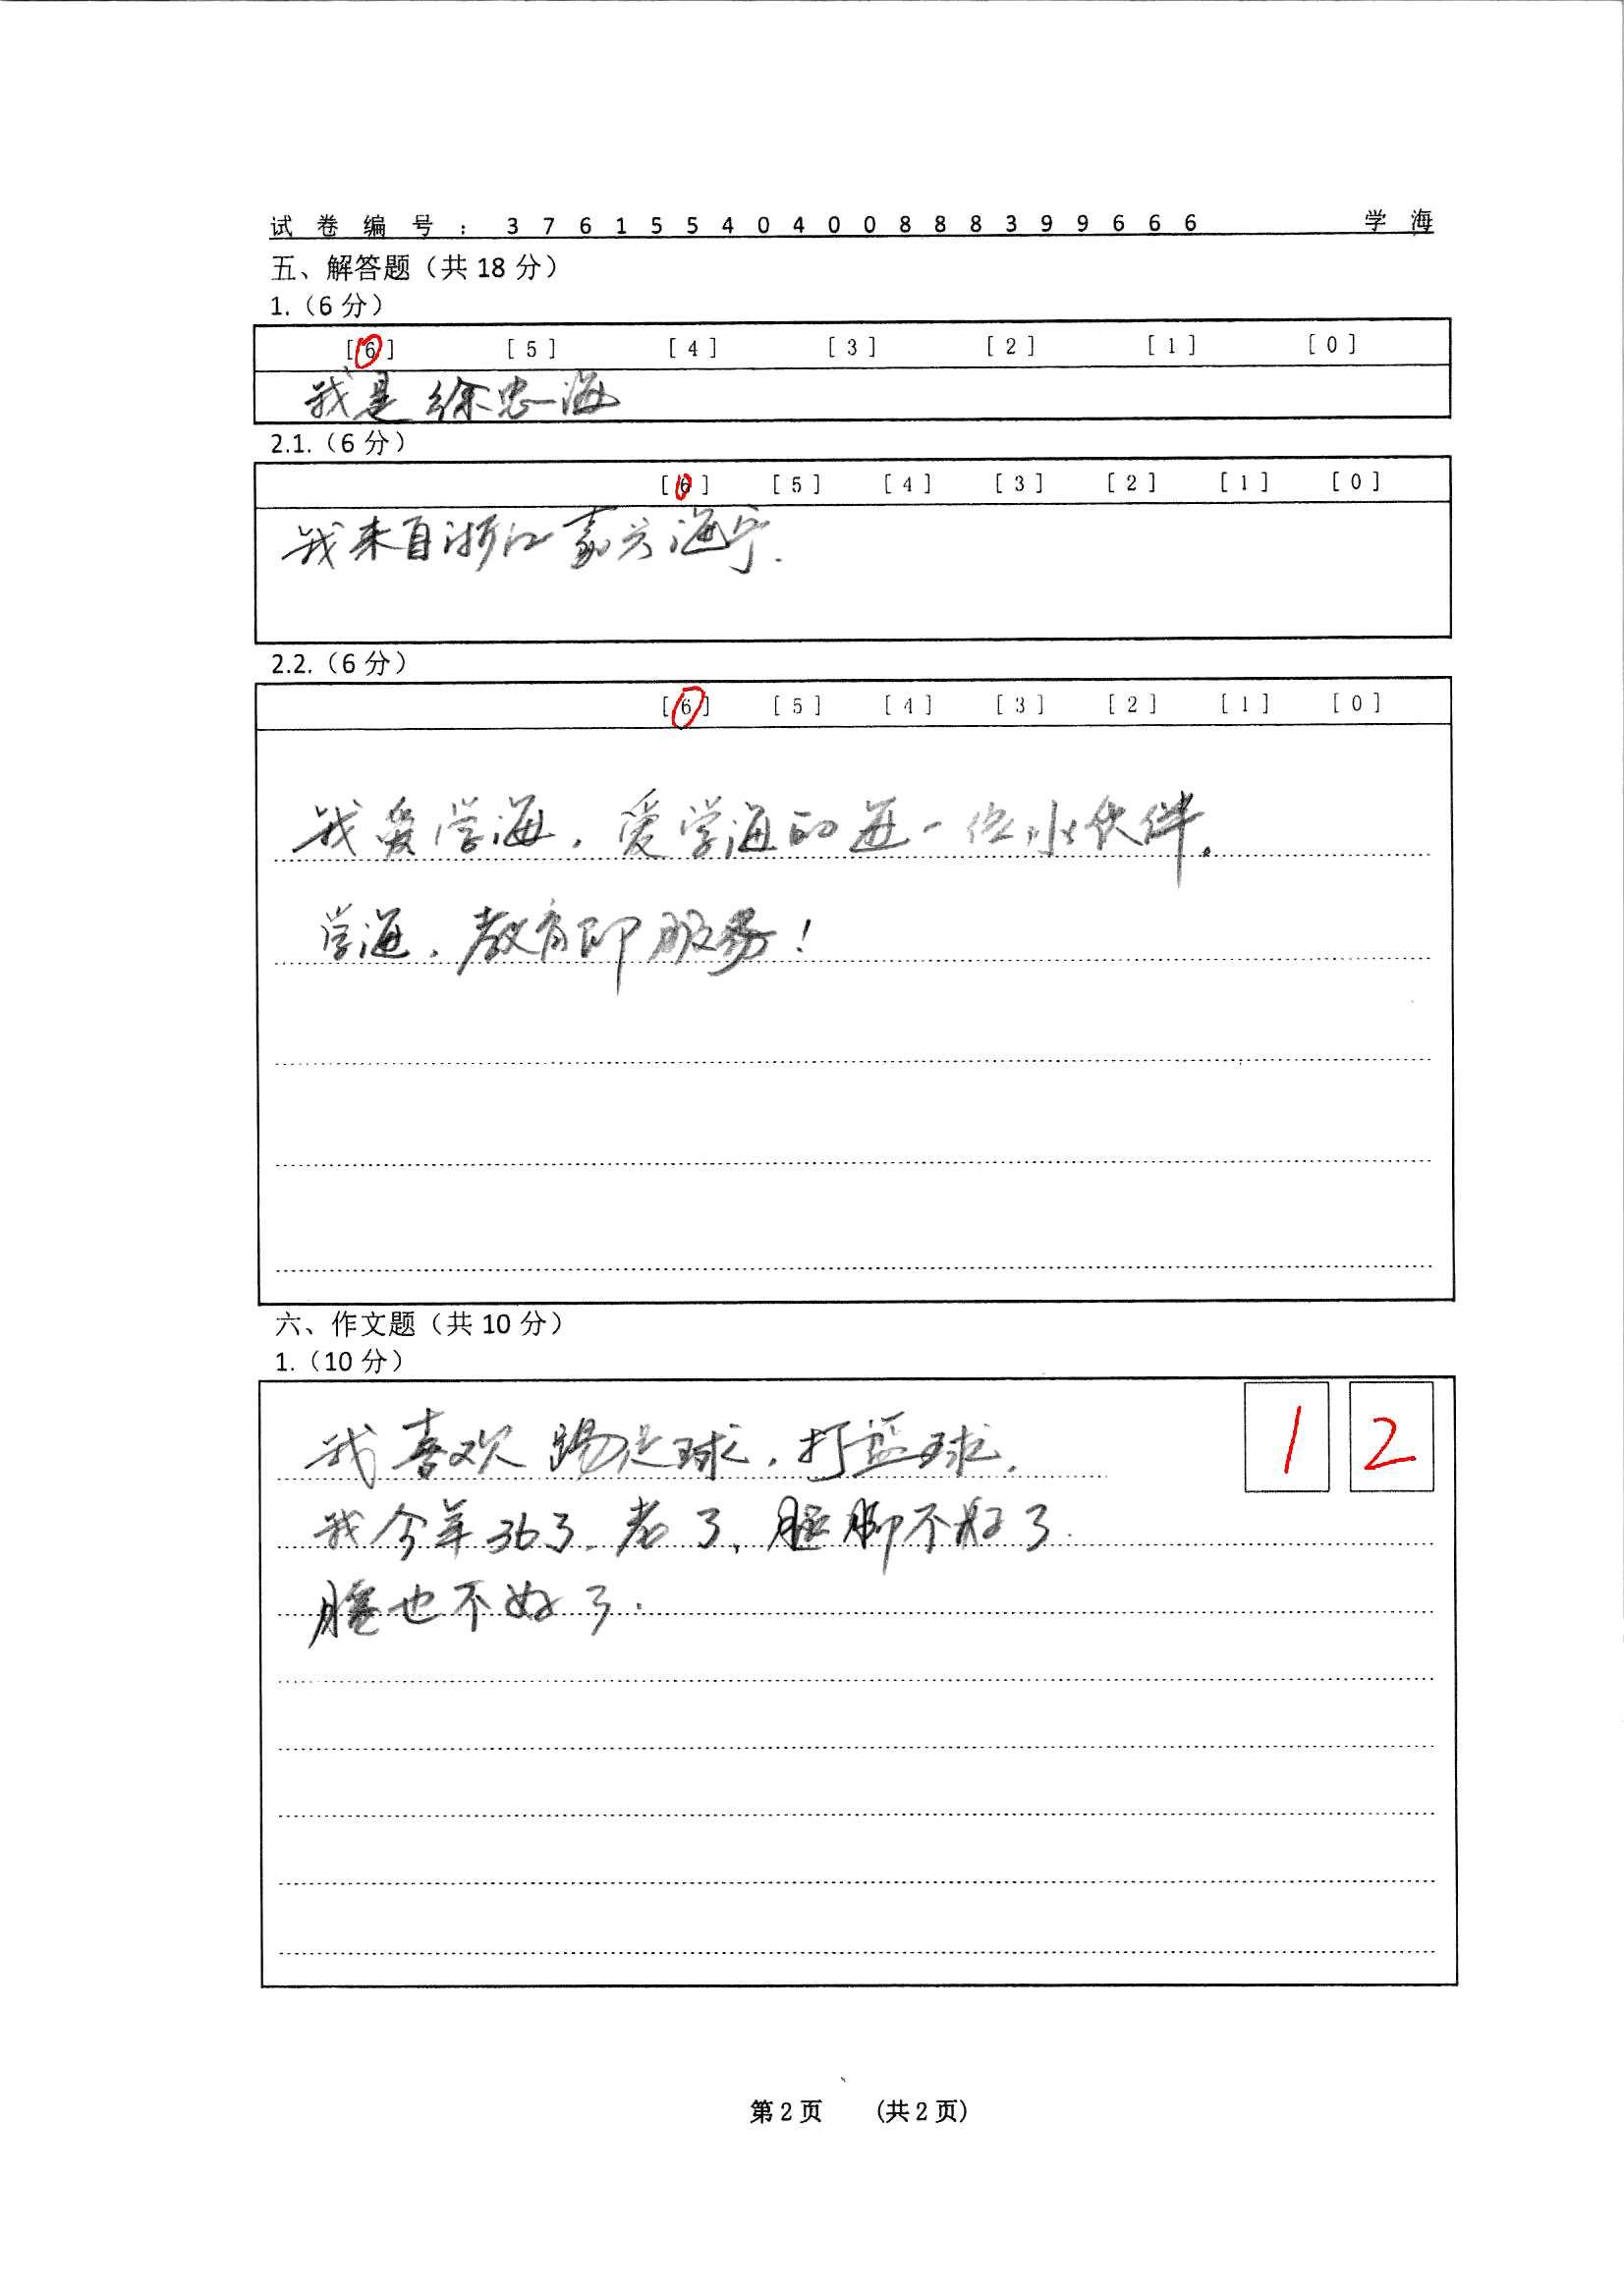 试卷编号：3761554040088839966 6 学海
五、解答题（共 18 分）
1.（6 分）
[6] [5] [4] [3] [2] [1] [0]
我是徐忠海
2.1.（6 分）
[6] [5] [4] [3] [2] [1] [0]
我来自浙江嘉兴海宁.
2.2.（6 分）
[6] [5] [4] [3] [2] [1] [0]
我爱学海，爱学海的每一位小伙伴。
学海，教育即服务！
六、作文题（共 10 分）
1.（10 分）
1 2
我喜欢踢足球，打篮球，
我今年36了，老了，腿脚不好了.
腰也不好了.
第 2 页 (共 2 页)